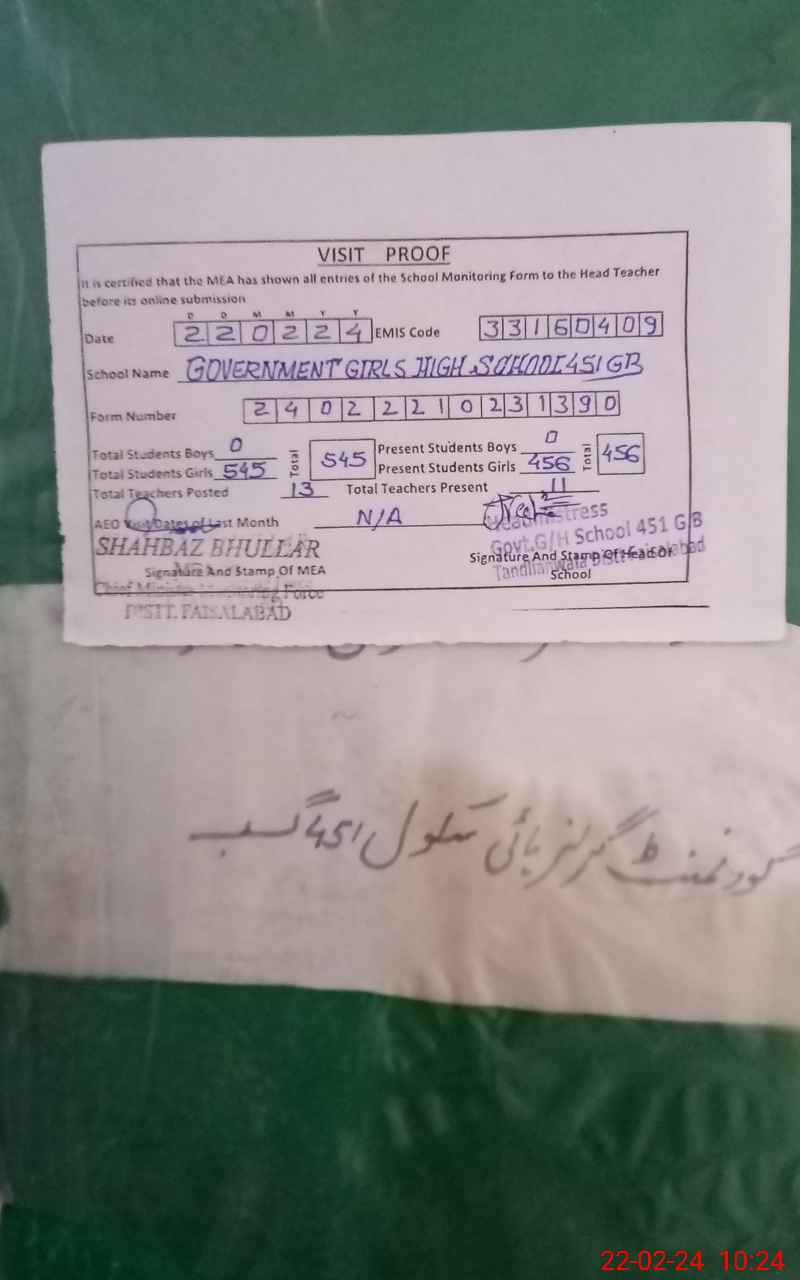 VISIT PROOF
It is certified that the MEA has shown all entries of the School Monitoring Form to the Head Teacher
before its online submission
D D M M Y Y
Date 2 2 0 2 2 4 EMIS Code 3 3 1 6 0 4 0 9
School Name GOVERNMENT GIRLS HIGH SCHOOL 451 GB
Form Number 2 4 0 2 2 2 1 0 2 3 1 3 9 0
Total Students Boys 0 Total 545 Present Students Boys 0 Total 456
Total Students Girls 545 Present Students Girls 456
Total Teachers Posted 13 Total Teachers Present 11
AEO Visit/Dates of Last Month N/A
Headmistress
SHAHBAZ BHULLAR Govt.G/H School 451 G/B
Signature And Stamp Of MEA Signature And Stamp Of Head Of
School
Tandlianwala Distt. Faisalabad
Chief Minister Monitoring Force
DISTT. FAISALABAD
گورنمنٹ گرلز ہائی سکول 451 گ ب
22-02-24 10:24